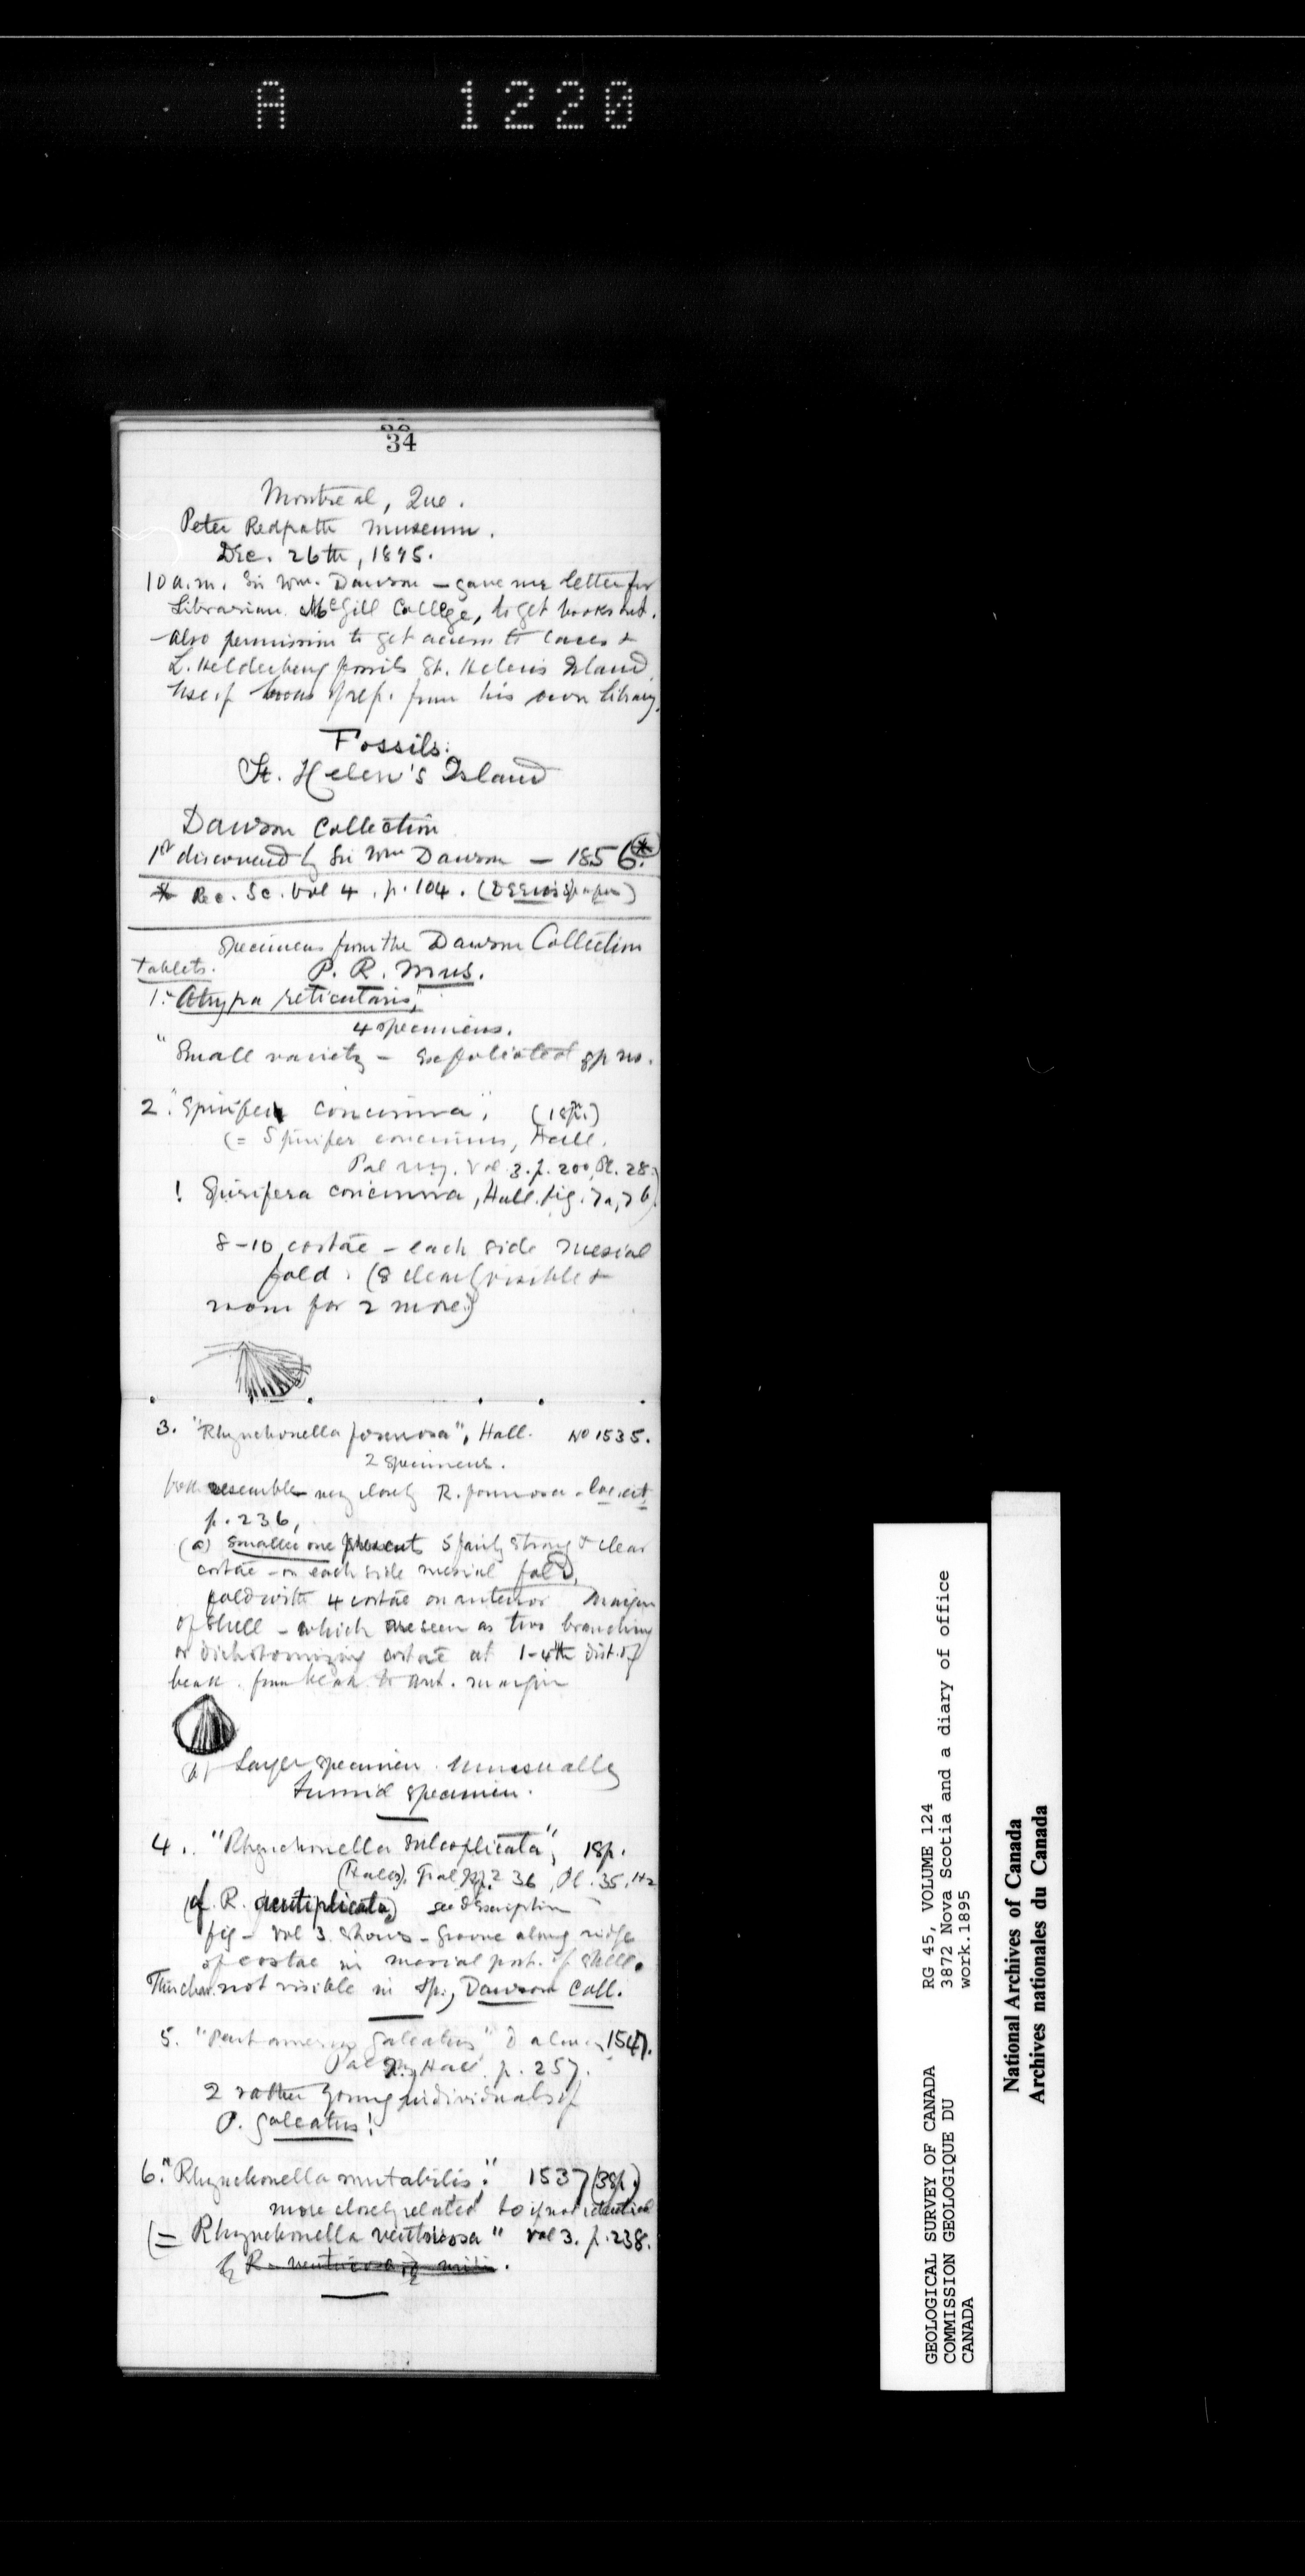 A 1220
34
Montreal, Que.
Peter Redpath Museum.
Dec. 26th, 1895.
10 a.m. Sir Wm. Dawson – gave me letter for
Librarian McGill College, to get books out.
also permission to get access to cases &
L. Helderberg fossils St. Helen's Island.
Use of books of ref. from his own library.
Fossils:
St. Helen's Island
Dawson Collection
1st discovered by Sir Wm Dawson – 1856.*
* Rec. Sc. Vol 4. p. 104. (Deeks' paper)
Specimens from the Dawson Collection
Tablets. P. R. Mus.
1. "Atrypa reticularis,"
4 specimens.
"Small variety – exfoliated
2. "Spirifera concinna", (1 sp.)
(= Spirifer concinnus, Hall.
Pal N.Y. Vol. 3. p. 200, Pl. 28.
! Spirifera concinna, Hall. fig. 7a, 7b)
8–10 costae – each side mesial
fold. (8 clearly visible &
room for 2 more.)
3. "Rhynchonella formosa", Hall. No 1535.
2 specimens.
both resemble very closely R. formosa – loc. cit.
p. 236,
(a) Smaller one presents 5 fairly strong & clear
costae – on each side mesial fold,
fold with 4 costae on anterior margin
of shell – which are seen as two branching
or dichotomizing costae at 1–4th dist. of
beak. from beak to ant. margin
(b) Larger specimen unusually
tumid specimen.
4. "Rhynchonella subcoplicata", 1 sp.
36, Pl. 35,
(cf. R. acutiplicata) see description
fig – Vol 3 shows – groove along ridge
of costae in mesial port. of shell.
This char. not visible in sp., Dawson Coll.
5. "Pentamerus galeatus," Dalman 1547.
Pal N.Y. Hall. p. 257.
2 rather young individuals of
P. galeatus!
6. "Rhynchonella mutabilis." 1537 (3 sp.)
more closely related to if not identical
(= Rhynchonella ventricosa" Vol 3. p. 238.
R. ventricosa
GEOLOGICAL SURVEY OF CANADA
COMMISSION GEOLOGIQUE DU
CANADA
RG 45, VOLUME 124
3872 Nova Scotia and a diary of office
work.1895
National Archives of Canada
Archives nationales du Canada